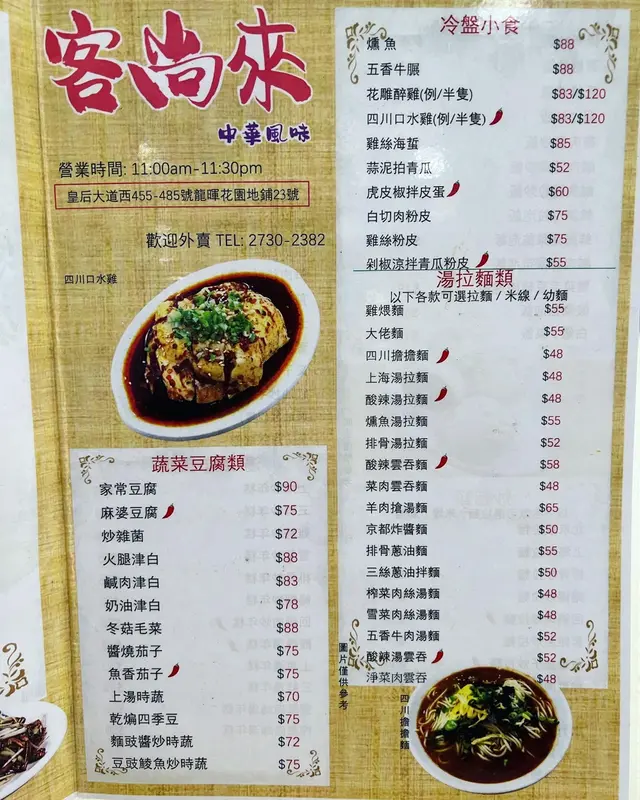 客尚來
中華風味
營業時間: 11:00am-11:30pm
皇后大道西455-485號龍暉花園地鋪23號
歡迎外賣 TEL: 2730-2382
四川口水雞
蔬菜豆腐類
家常豆腐 $90
麻婆豆腐 $75
炒雜菌 $72
火腿津白 $88
鹹肉津白 $83
奶油津白 $78
冬菇毛菜 $88
醬燒茄子 $75
魚香茄子 $75
上湯時蔬 $70
乾煸四季豆 $75
麵豉醬炒時蔬 $72
豆豉鯪魚炒時蔬 $75
冷盤小食
燻魚 $88
五香牛𦟌 $88
花雕醉雞(例/半隻) $83/$120
四川口水雞(例/半隻) $83/$120
雞絲海蜇 $85
蒜泥拍青瓜 $52
虎皮椒拌皮蛋 $60
白切肉粉皮 $75
雞絲粉皮 $75
剁椒涼拌青瓜粉皮 $55
湯拉麵類
以下各款可選拉麵 / 米線 / 幼麵
雞煨麵 $55
大佬麵 $55
四川擔擔麵 $48
上海湯拉麵 $48
酸辣湯拉麵 $48
燻魚湯拉麵 $55
排骨湯拉麵 $52
酸辣雲吞麵 $58
菜肉雲吞麵 $48
羊肉搶湯麵 $65
京都炸醬麵 $50
排骨蔥油麵 $55
三絲蔥油拌麵 $50
榨菜肉絲湯麵 $48
雪菜肉絲湯麵 $48
五香牛肉湯麵 $52
酸辣湯雲吞 $52
淨菜肉雲吞 $48
圖片僅供參考
四川擔擔麵